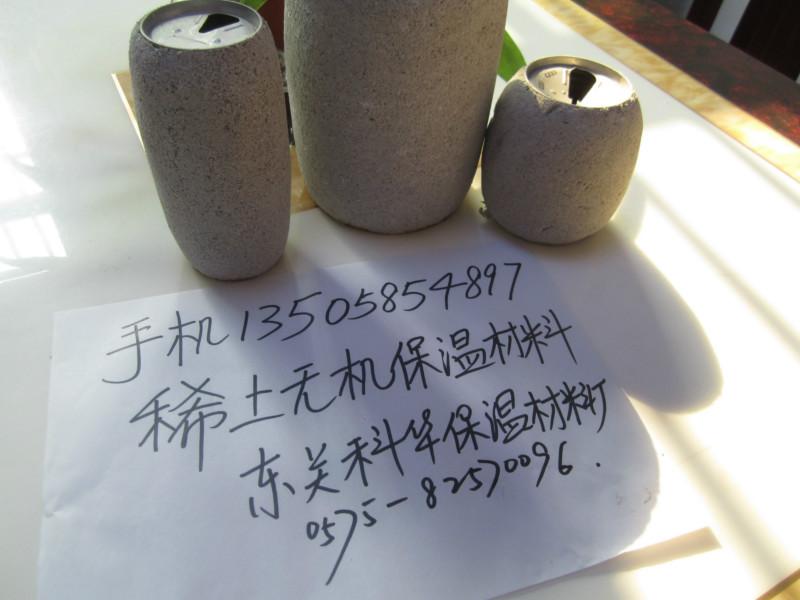 手机13505854897
稀土无机保温材料
东关科华保温材料厂
0575-82570096.